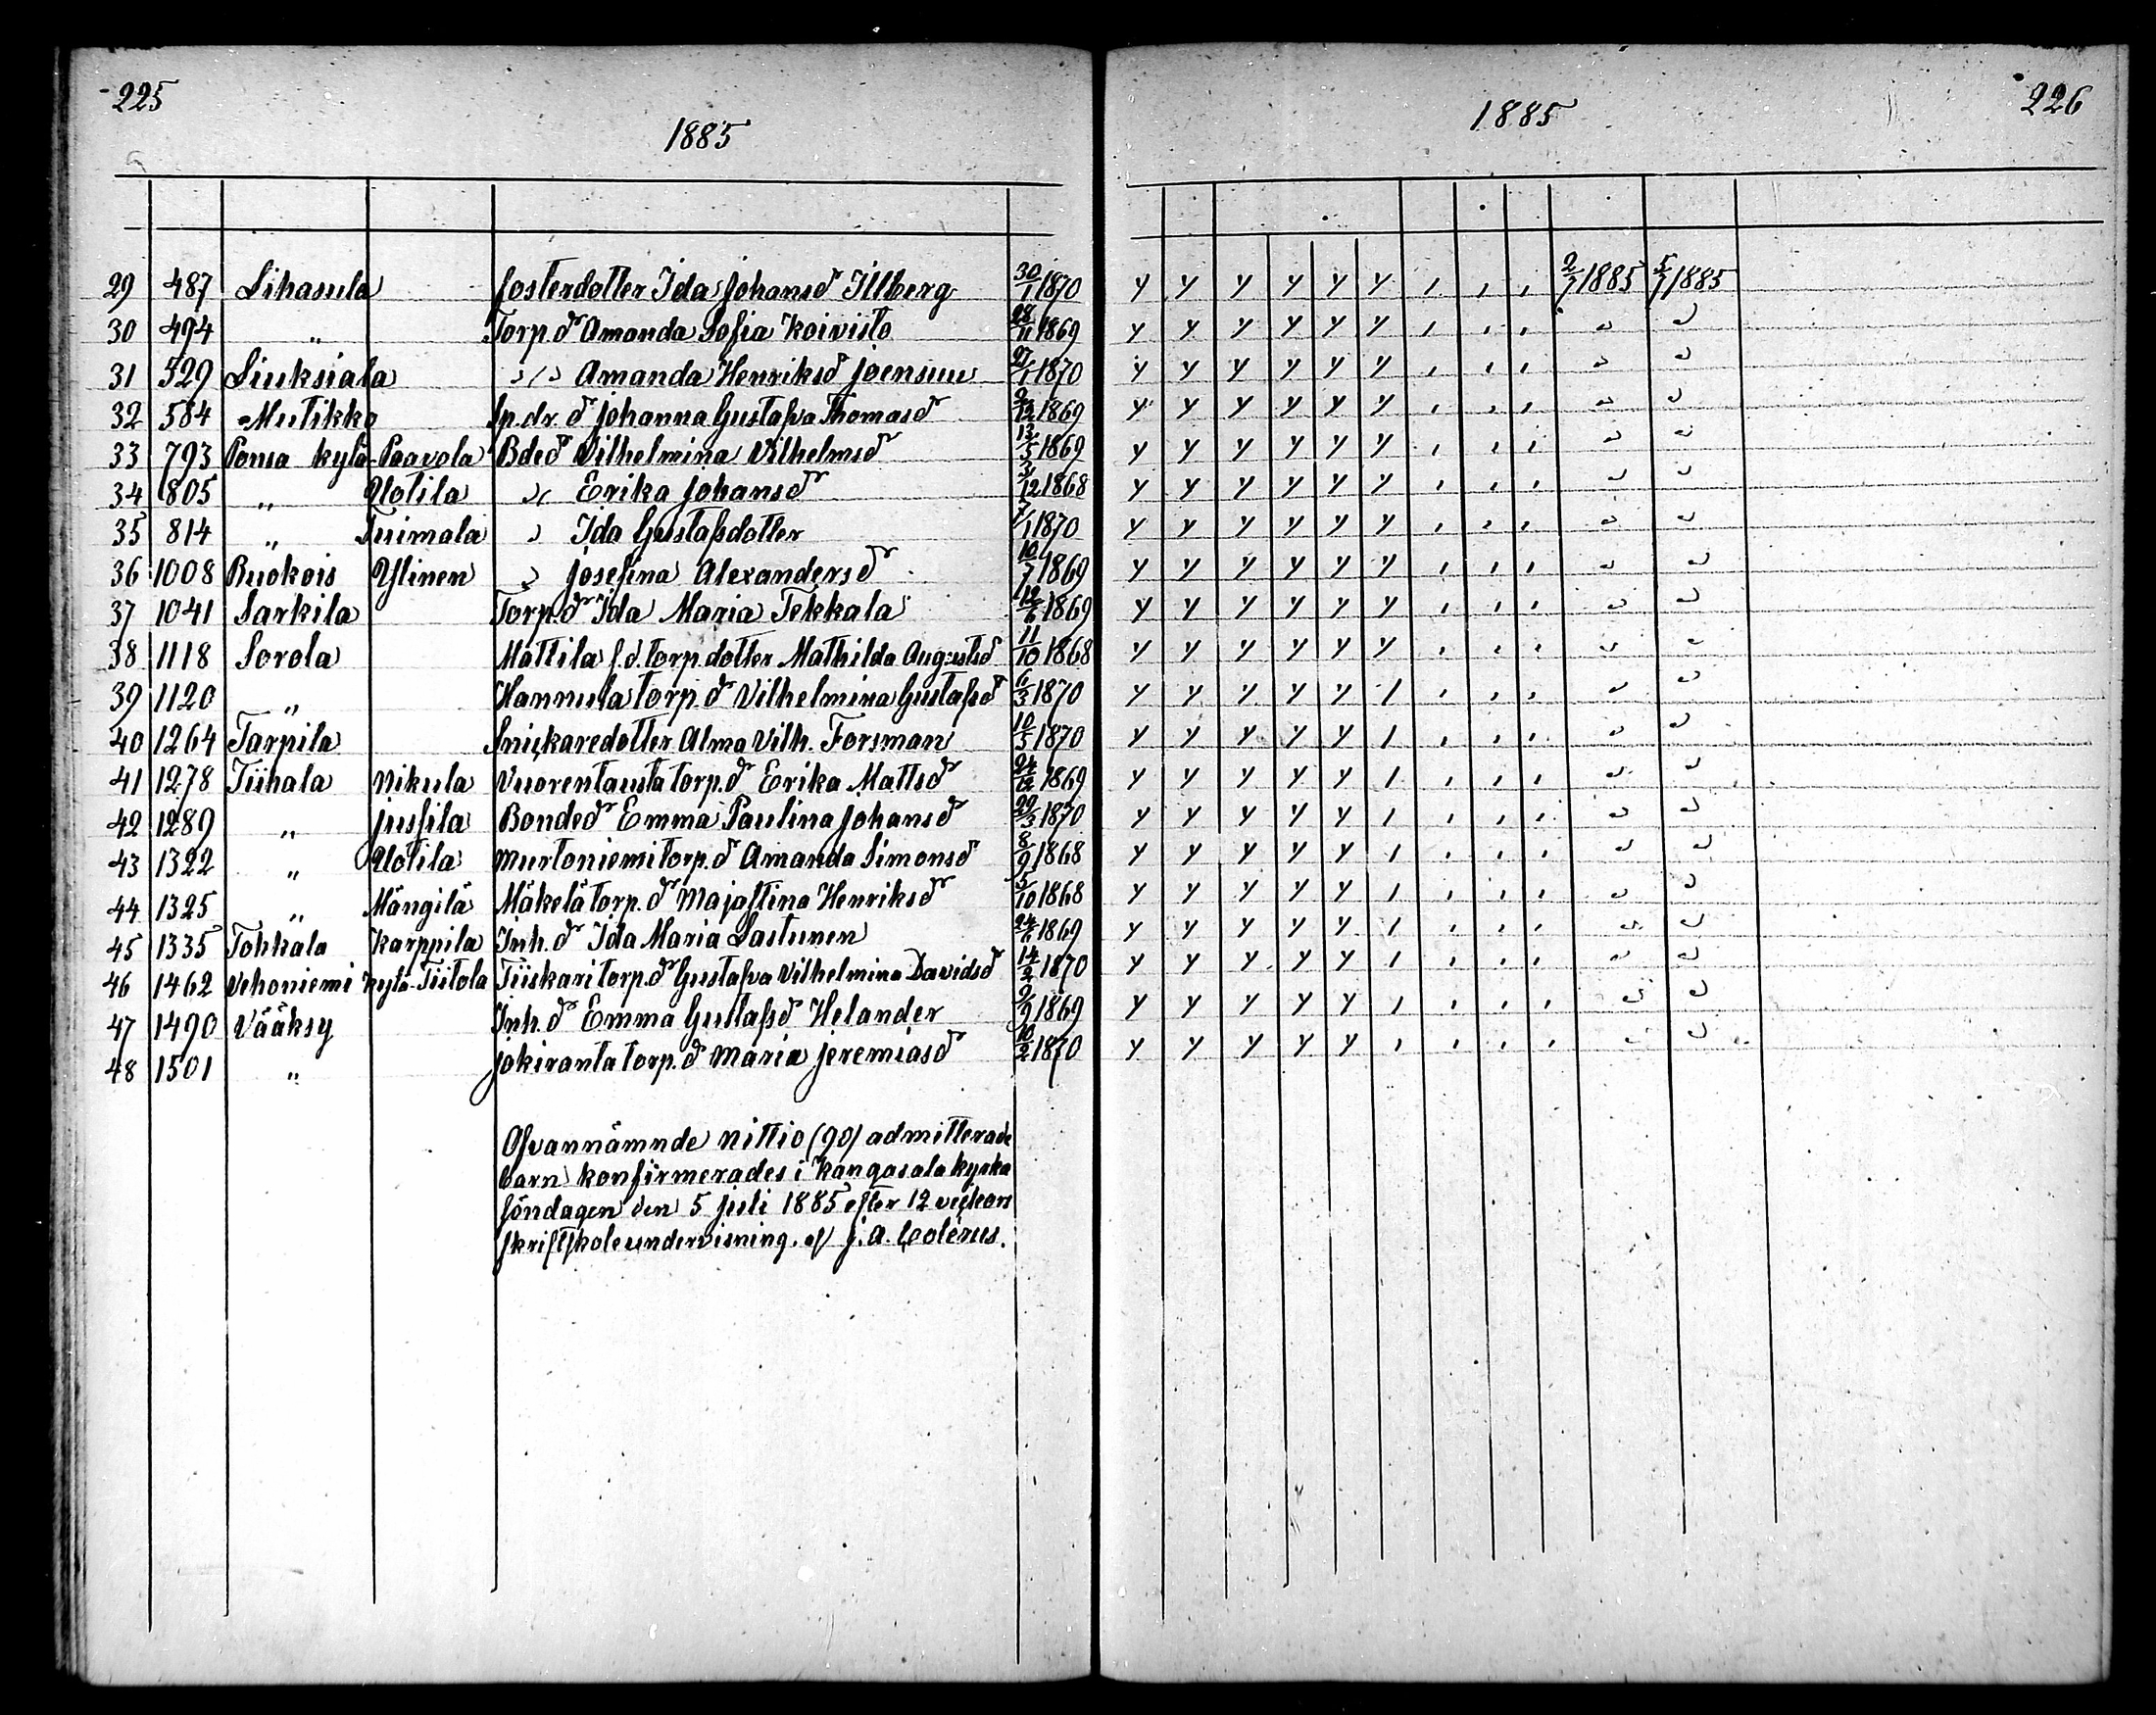 225
1885
29 487 Lihasula fosterdotter Ida Johansd Illberg 30/1 1870
30 494 " Torp.dr Amanda Sofia Koivisto 28/11 1869
31 529 Liuksiala " Amanda Henriksd Joensuu 27/1 1870
32 584 Mutikko Sp.dr.d Johanna Gustafva Thomasd 2/12 1869
33 793 Ponsa kylä-Paavola Bded Vilhelmina Vilhelmsd 13/5 1869
34 805 " Uotila " Erika Johansd 3/12 1868
35 814 " Tuimala " Ida Gustafsdotter 7/1 1870
36 1008 Ruokois Ylinen " Josefina Alexandersd 10/7 1869
37 1041 Sarkila Torp.dr Ida Maria Tekkala 12/6 1869
38 1118 Sorola Mattila f.d. torp.dotter Mathilda Augustsd 11/10 1868
39 1120 " Hannula torp.dr Vilhelmina Gustafsd 6/3 1870
40 1264 Tarpila Snickaredotter Alma Vilh. Forsman 10/5 1870
41 1278 Tiihala Nikula Vuorentausta torp.dr Erika Mattsd 24/12 1869
42 1289 " Jussila Bondedr Emma Paulina Johansd 29/3 1870
43 1322 " Uotila Murtoniemi torp.dr Amanda Simonsd 8/9 1868
44 1325 " Mängilä Mäkelä torp.dr Maja Stina Henriksd 5/10 1868
45 1335 Tohkala Karppila Inh.dr Ida Maria Lastunen 24/6 1869
46 1462 Vehoniemi kylä-Tiitola Tiiskari torp.dr Gustafva Vilhelmina Davidsd 14/2 1870
47 1490 Vääksy Inh.dr Emma Gustafsd Helander 9/9 1869
48 1501 " Jokiranta torp.dr Maria Jeremiasd 10/2 1870
Ofvannämnde nittio (90) admitterade
barn konfirmerades i Kangasala kyrka
söndagen den 5 Juli 1885 efter 12 veckors
skriftskoleundervisning. af J. A. Colérus.
226
1885
y y y y y y , , , 2/7 1885 5/7 1885
y y y y y y , , , " "
y y y y y y , , , " "
y y y y y y , , , " "
y y y y y y , , , " "
y y y y y y , , , " "
y y y y y y , , , " "
y y y y y y , , , " "
y y y y y y , , , " "
y y y y y y , , , " "
y y y y y / , , , " "
y y y y y / , , , " "
y y y y y / , , , " "
y y y y y / , , , " "
y y y y y / , , , " "
y y y y y / , , , " "
y y y y y / , , , " "
y y y y y / , , , " "
y y y y y / , , , " "
y y y y y / , , , " "